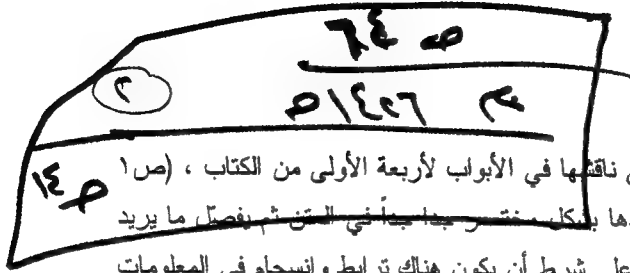 ص ٦٤
١٤٢٦ ص
٢
ناقشها في الأبواب لأربعة الأولى من الكتاب ، (ص١
ص ١٤
بشكل مختصر جداً جداً في المتن ثم يفصل ما يريد
على شرط أن يكون هناك ترابط وانسجام في المعلومات